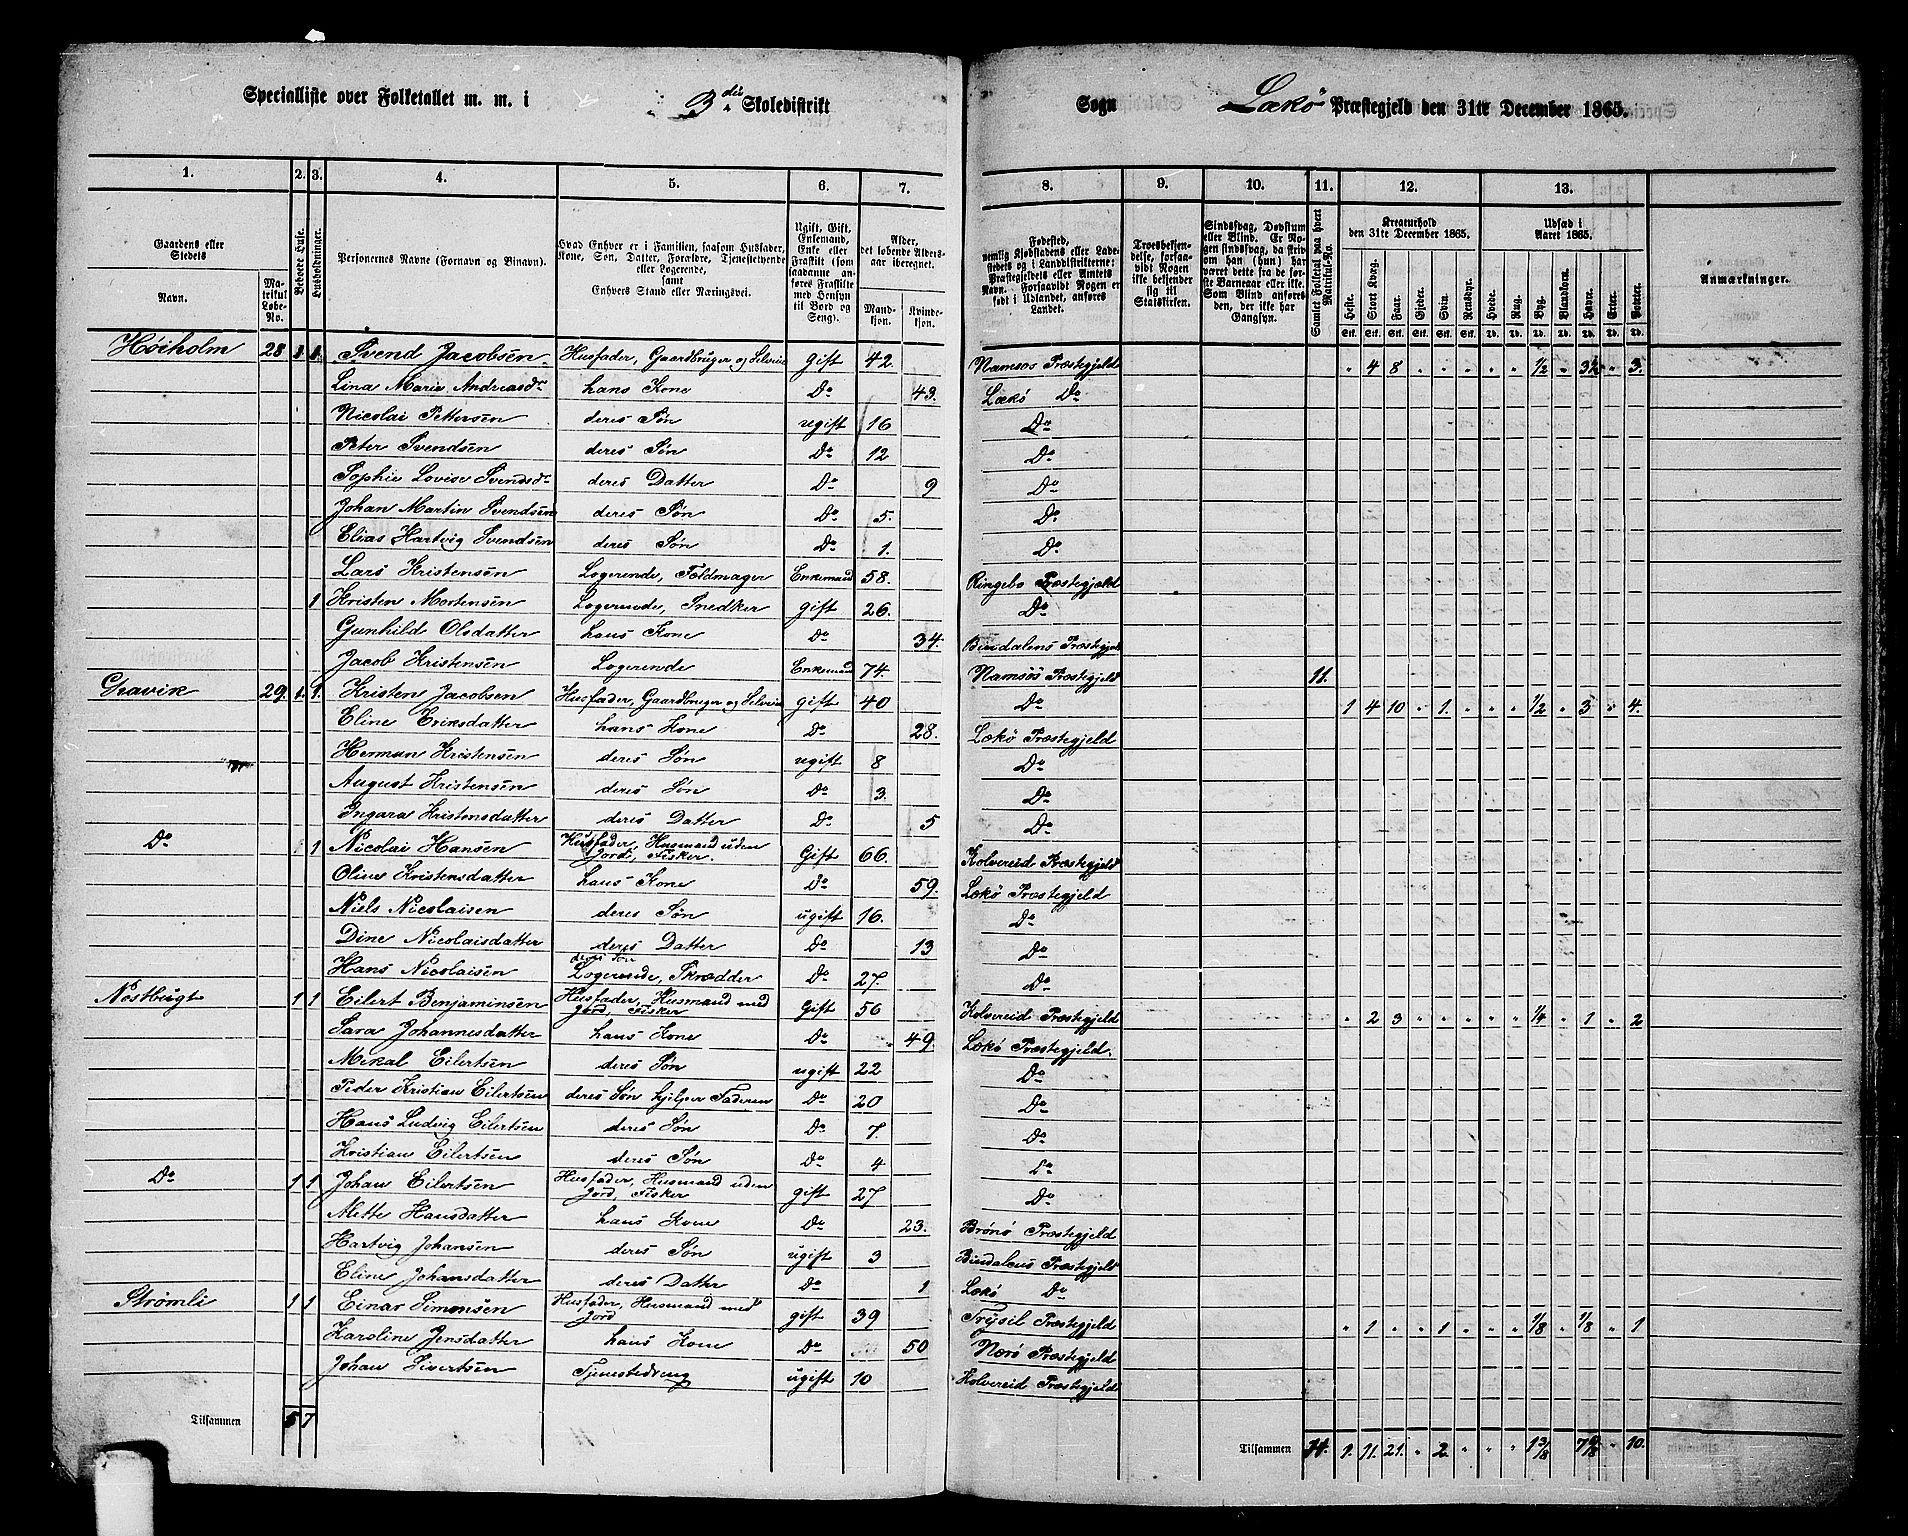 Specialliste over Folketallet m. m. i 3die Skoledistrikt Sogn Lækø Præstegjeld den 31te December 1865.
1. 2. 3. 4. 5. 6. 7. 8. 9. 10. 11. 12. 13.
Gaardens eller Stedets Navn. Matrikul Løbe-No. Beboede Huse. Husholdninger. Personernes Navne (Fornavn og Binavn). Hvad Enhver er i Familien, saasom Husfader, Kone, Søn, Datter, Forældre, Tjenestetyende eller Logerende, samt Enhvers Stand eller Næringsvei. Ugift, Gift, Enkemand, Enke eller Fraskilt (som saadanne anføres Fraskilte med Hensyn til Bord og Seng). Alder, det løbende Aldersaar iberegnet. Mandkjøn. Kvindekjøn.
Fødested, nemlig Kjøbstadens eller Ladestedets og i Landdistrikterne: Præstegjeldets eller Amtets Navn. Forsaavidt Nogen er født i Udlandet, anføres Landet. Troesbekjendelse, forsaavidt Nogen ikke bekjender sig til Statskirken. Sindssvag, Døvstum eller Blind. Er Nogen sindssvag, da skrives om han (hun) har været dette fra de første Barneaar eller ikke. Som Blind anføres den, der ikke har Gangsyn. Samlet Folketal paa hvert Matrikul-No. Kreaturhold den 31te December 1865. Heste. Stort Kvæg. Faar. Gjeder. Svin. Rensdyr. Udsæd i Aaret 1865. Hvede. Rug. Byg. Blandkorn. Havre. Erter. Poteter. Anmærkninger.
Høiholm 28 1 1 Svend Jacobsen Husfader, Gaardbruger og Selveier gift 42. Namsos Præstegjeld " 4 8 " " " " " 1/2 " 3½ " 3.
Lina Marie Andreasdr hans Kone Do 43. Lækø Do
Nicolai Pettersen deres Søn ugift 16 Do
Peter Svendsen deres Søn Do 12 Do
Sophie Lovise Svendsdr deres Datter Do 9 Do
Johan Martin Svendsen deres Søn Do 5. Do
Elias Hartvig Svendsen deres Søn Do 1. Do
Lars Kristensen Logerende, Foldmager Enkemand 58. Ringebo Præstegjæld
1 Kristen Mortensen Logerende, Snedker gift 26. Do
Gunhild Olsdatter hans Kone Do 34. Bindalens Præstegjeld
Jacob Kristensen Logerende Enkemand 74. Namsøs Præstegjeld 11.
Gravik 29. 1. 1. Kristen Jacobsen Husfader, Gaardbruger og Selveier gift 40 Do 1 4 10 " 1. " " " 1/2 " 3 " 4.
Eline Eriksdatter hans Kone Do 28. Lækø Præstegjeld
Herman Kristensen deres Søn ugift 8 Do
August Kristensen deres Søn Do 3. Do
Ingara Kristensdatter deres Datter Do 5 Do
Do 1 Nicolai Hansen Husfader, Husmand uden Jord, Fisker. Gift 66. Kolvereid Præstegjeld
Oline Kristensdatter hans Kone Do 59. Lækø Præstegjeld
Niels Nicolaisen deres Søn ugift 16. Do
Dine Nicolaisdatter deres Datter Do 13 Do
Hans Nicolaisen deres Søn Logerende, Skrædder Do 27. Do
Nostbugt 1 1 Eilert Benjaminsen Husfader, Husmand med Jord, Fisker Gift 56 Kolvereid Præstegjeld " 2 3 " " " " " 1/4 " 1 " 2
Sara Johannesdatter hans Kone Do 49. Lækø Præstegjeld.
Mikal Eilertsen deres Søn ugift 22 Do
Peder Kristian Eilertsen deres Søn hjelper Faderen Do 20 Do
Hans Ludvig Eilertsen deres Søn Do 7. Do
Kristian Eilertsen deres Søn Do 4 Do
Do 1 1 Johan Eilertsen Husfader, Husmand uden Jord, Fisker gift 27 Do
Mette Hansdatter hans Kone Do 23. Brønø Præstegjeld
Hartvig Johansen deres Søn ugift 3 Bindalens Præstegjeld
Eline Johansdatter deres Datter Do 1 Lækø Do
Strømli 1 1 Einar Simonsen Husfader, Husmand med Jord gift 39 Trysil Præstegjeld " 1 " " 1 " " " 1/8 " 1/8 " 1
Karoline Jensdatter hans Kone Do 50 Nærø Præstegjeld
Johan Sivertsen Tjenestedreng ugift 10 Kolvereid Præstegjeld
Tilsammen 5 7 Tilsammen 1. 11. 21. " 2. " " " 1 3/8 7 5/8 " 10.